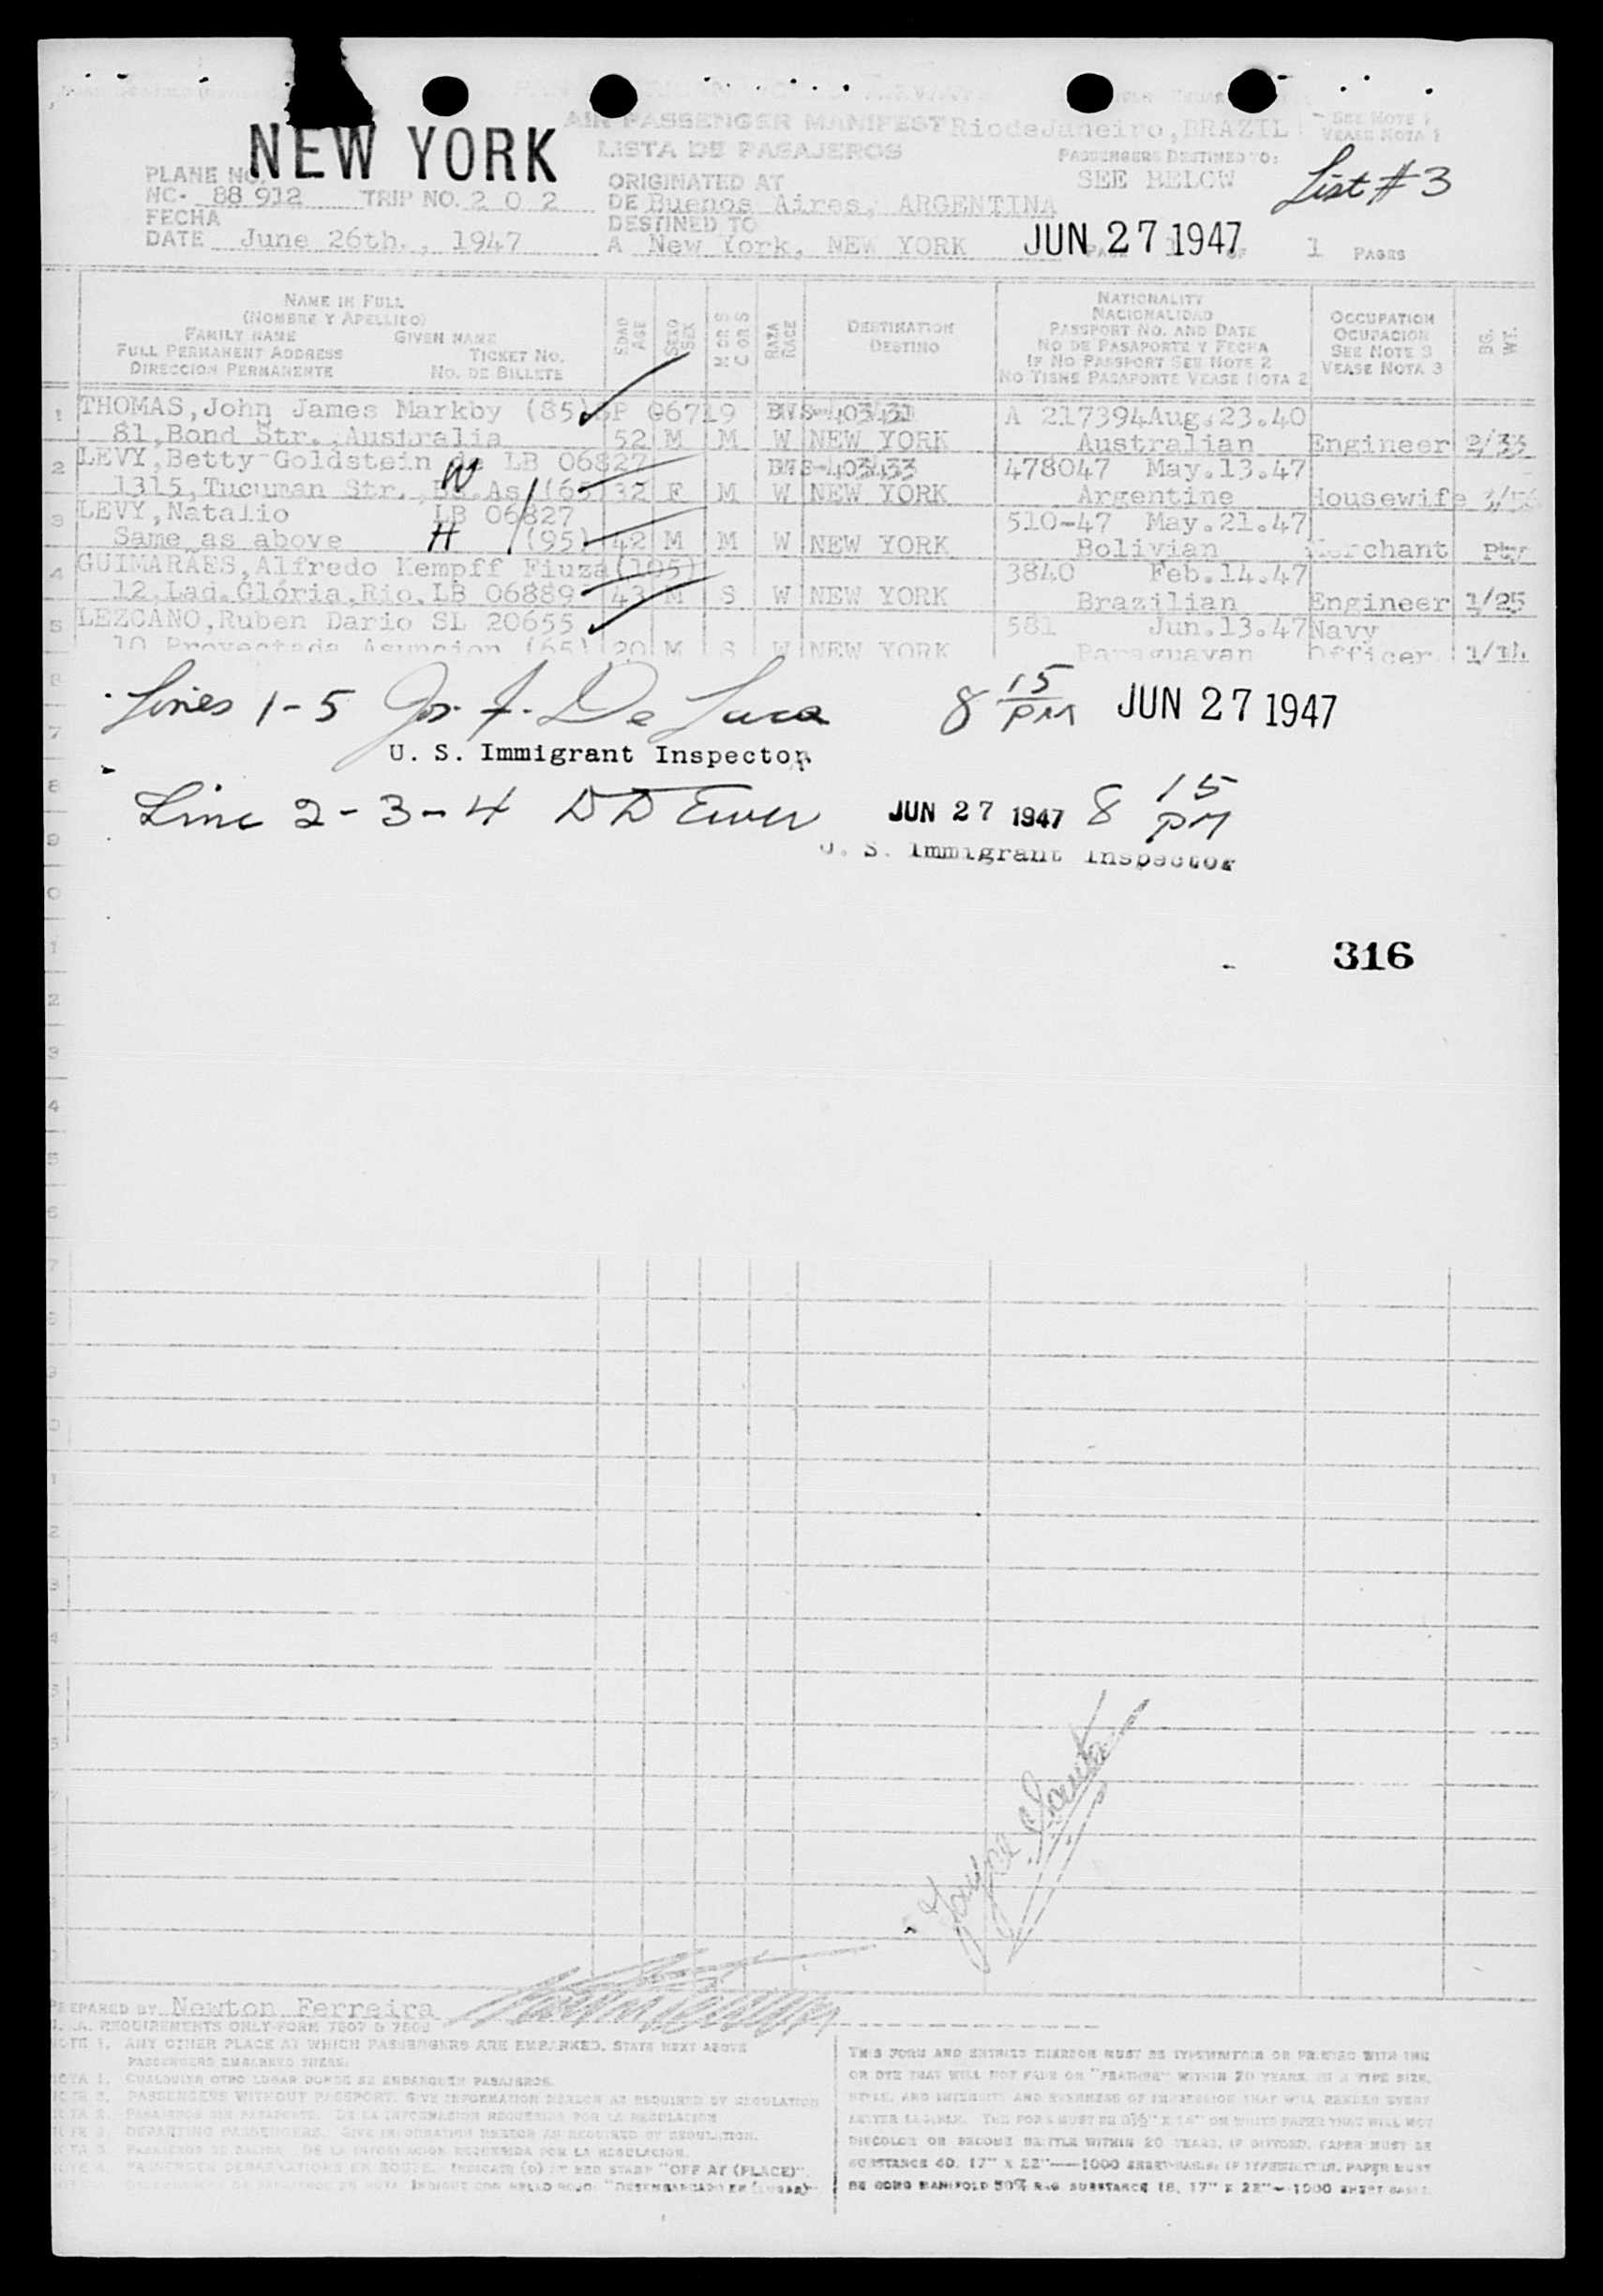 AIR PASSENGER MANIFEST Rio de Janeiro, BRAZIL
SEE NOTE 1
VEASE NOTA 1
NEW YORK
LISTA DE PASAJEROS
PASSENGERS DESTINED TO:
SEE BELOW
List #3
PLANE NO.
NC- 88912 TRIP NO. 2 0 2
ORIGINATED AT
DE Buenos Aires, ARGENTINA
FECHA
DATE June 26th., 1947
DESTINED TO
A New York, NEW YORK
JUN 27 1947
1 PAGES
NAME IN FULL
(NOMBRE Y APELLIDO)
FAMILY NAME GIVEN NAME
FULL PERMANENT ADDRESS TICKET NO.
DIRECCION PERMANENTE NO. DE BILLETE
EDAD
AGE
SEXO
SEX
M OR S
C OR S
RAZA
RACE
DESTINATION
DESTINO
NATIONALITY
NACIONALIDAD
PASSPORT NO. AND DATE
NO DE PASAPORTE Y FECHA
IF NO PASSPORT SEE NOTE 2
NO TIENE PASAPORTE VEASE NOTA 2
OCCUPATION
OCUPACION
SEE NOTE 3
VEASE NOTA 3
BG.
WT.
1 THOMAS, John James Markby (85) SP 06719 BWS-403431 A 217394 Aug.23.40
81, Bond Str., Australia 52 M M W NEW YORK Australian Engineer 2/33
2 LEVY, Betty Goldstein de LB 06827 BWS-403433 478047 May.13.47
W
1315, Tucuman Str., Bs.As (65) 32 F M W NEW YORK Argentine Housewife
3 LEVY, Natalio LB 06827 510-47 May.21.47
Same as above H (95) 42 M M W NEW YORK Bolivian Merchant
4 GUIMARÃES, Alfredo Kempff Fiuza (105) 3840 Feb.14.47
12, Lad. Glória, Rio. LB 06889 43 M S W NEW YORK Brazilian Engineer 1/25
5 LEZCANO, Ruben Dario SL 20655 581 Jun.13.47 Navy
10 Proyectada Asuncion (65) 20 M S W NEW YORK Paraguayan Officer 1/14
Lines 1-5 Jos. F. De Luca 8 15 PM JUN 27 1947
U. S. Immigrant Inspector
Line 2-3-4 JUN 27 1947 8 15 PM
U. S. Immigrant Inspector
316
PREPARED BY Newton Ferreira
REQUIREMENTS ONLY-FORM 7507 & 7509
NOTE 1. ANY OTHER PLACE AT WHICH PASSENGERS ARE EMBARKED, STATE NEXT ABOVE
PASSENGERS EMBARKED THERE.
NOTA 1. CUALQUIER OTRO LUGAR DONDE SE EMBARQUEN PASAJEROS.
NOTE 2. PASSENGERS WITHOUT PASSPORT. GIVE INFORMATION HEREON AS REQUIRED BY REGULATION
NOTA 2. PASAJEROS SIN PASAPORTE. DE LA INFORMACION REQUERIDA POR LA REGULACION
NOTE 3. DEPARTING PASSENGERS. GIVE INFORMATION HEREON AS REQUIRED BY REGULATION.
NOTA 3. PASAJEROS DE SALIDA. DE LA INFORMACION REQUERIDA POR LA REGULACION.
NOTE 4. PASSENGER DEBARKATIONS EN ROUTE. INDICATE (D) AT RED STAMP "OFF AT (PLACE)".
THIS FORM AND ENTRIES THEREON MUST BE TYPEWRITTEN OR PRINTED WITH INK
OR DYE THAT WILL NOT FADE OR "FEATHER" WITHIN 20 YEARS, IN A TYPE SIZE,
STYLE, AND INTENSITY AND EVENNESS OF IMPRESSION THAT WILL RENDER EVERY
LETTER LEGIBLE. THE FORM MUST BE ON WHITE PAPER THAT WILL NOT
DISCOLOR OR BECOME BRITTLE WITHIN 20 YEARS. PAPER MUST BE
SUBSTANCE 40, 17" X 22"—1000 SHEET-BASIS; IF TYPEWRITTEN, PAPER MUST
BE BOND MANIFOLD 50% RAG SUBSTANCE 18, 17" X 22"—1000 SHEET BASIS.